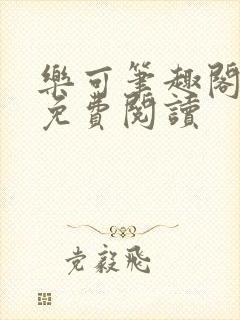 樂可筆趣閣
免費閱讀
党毅飛